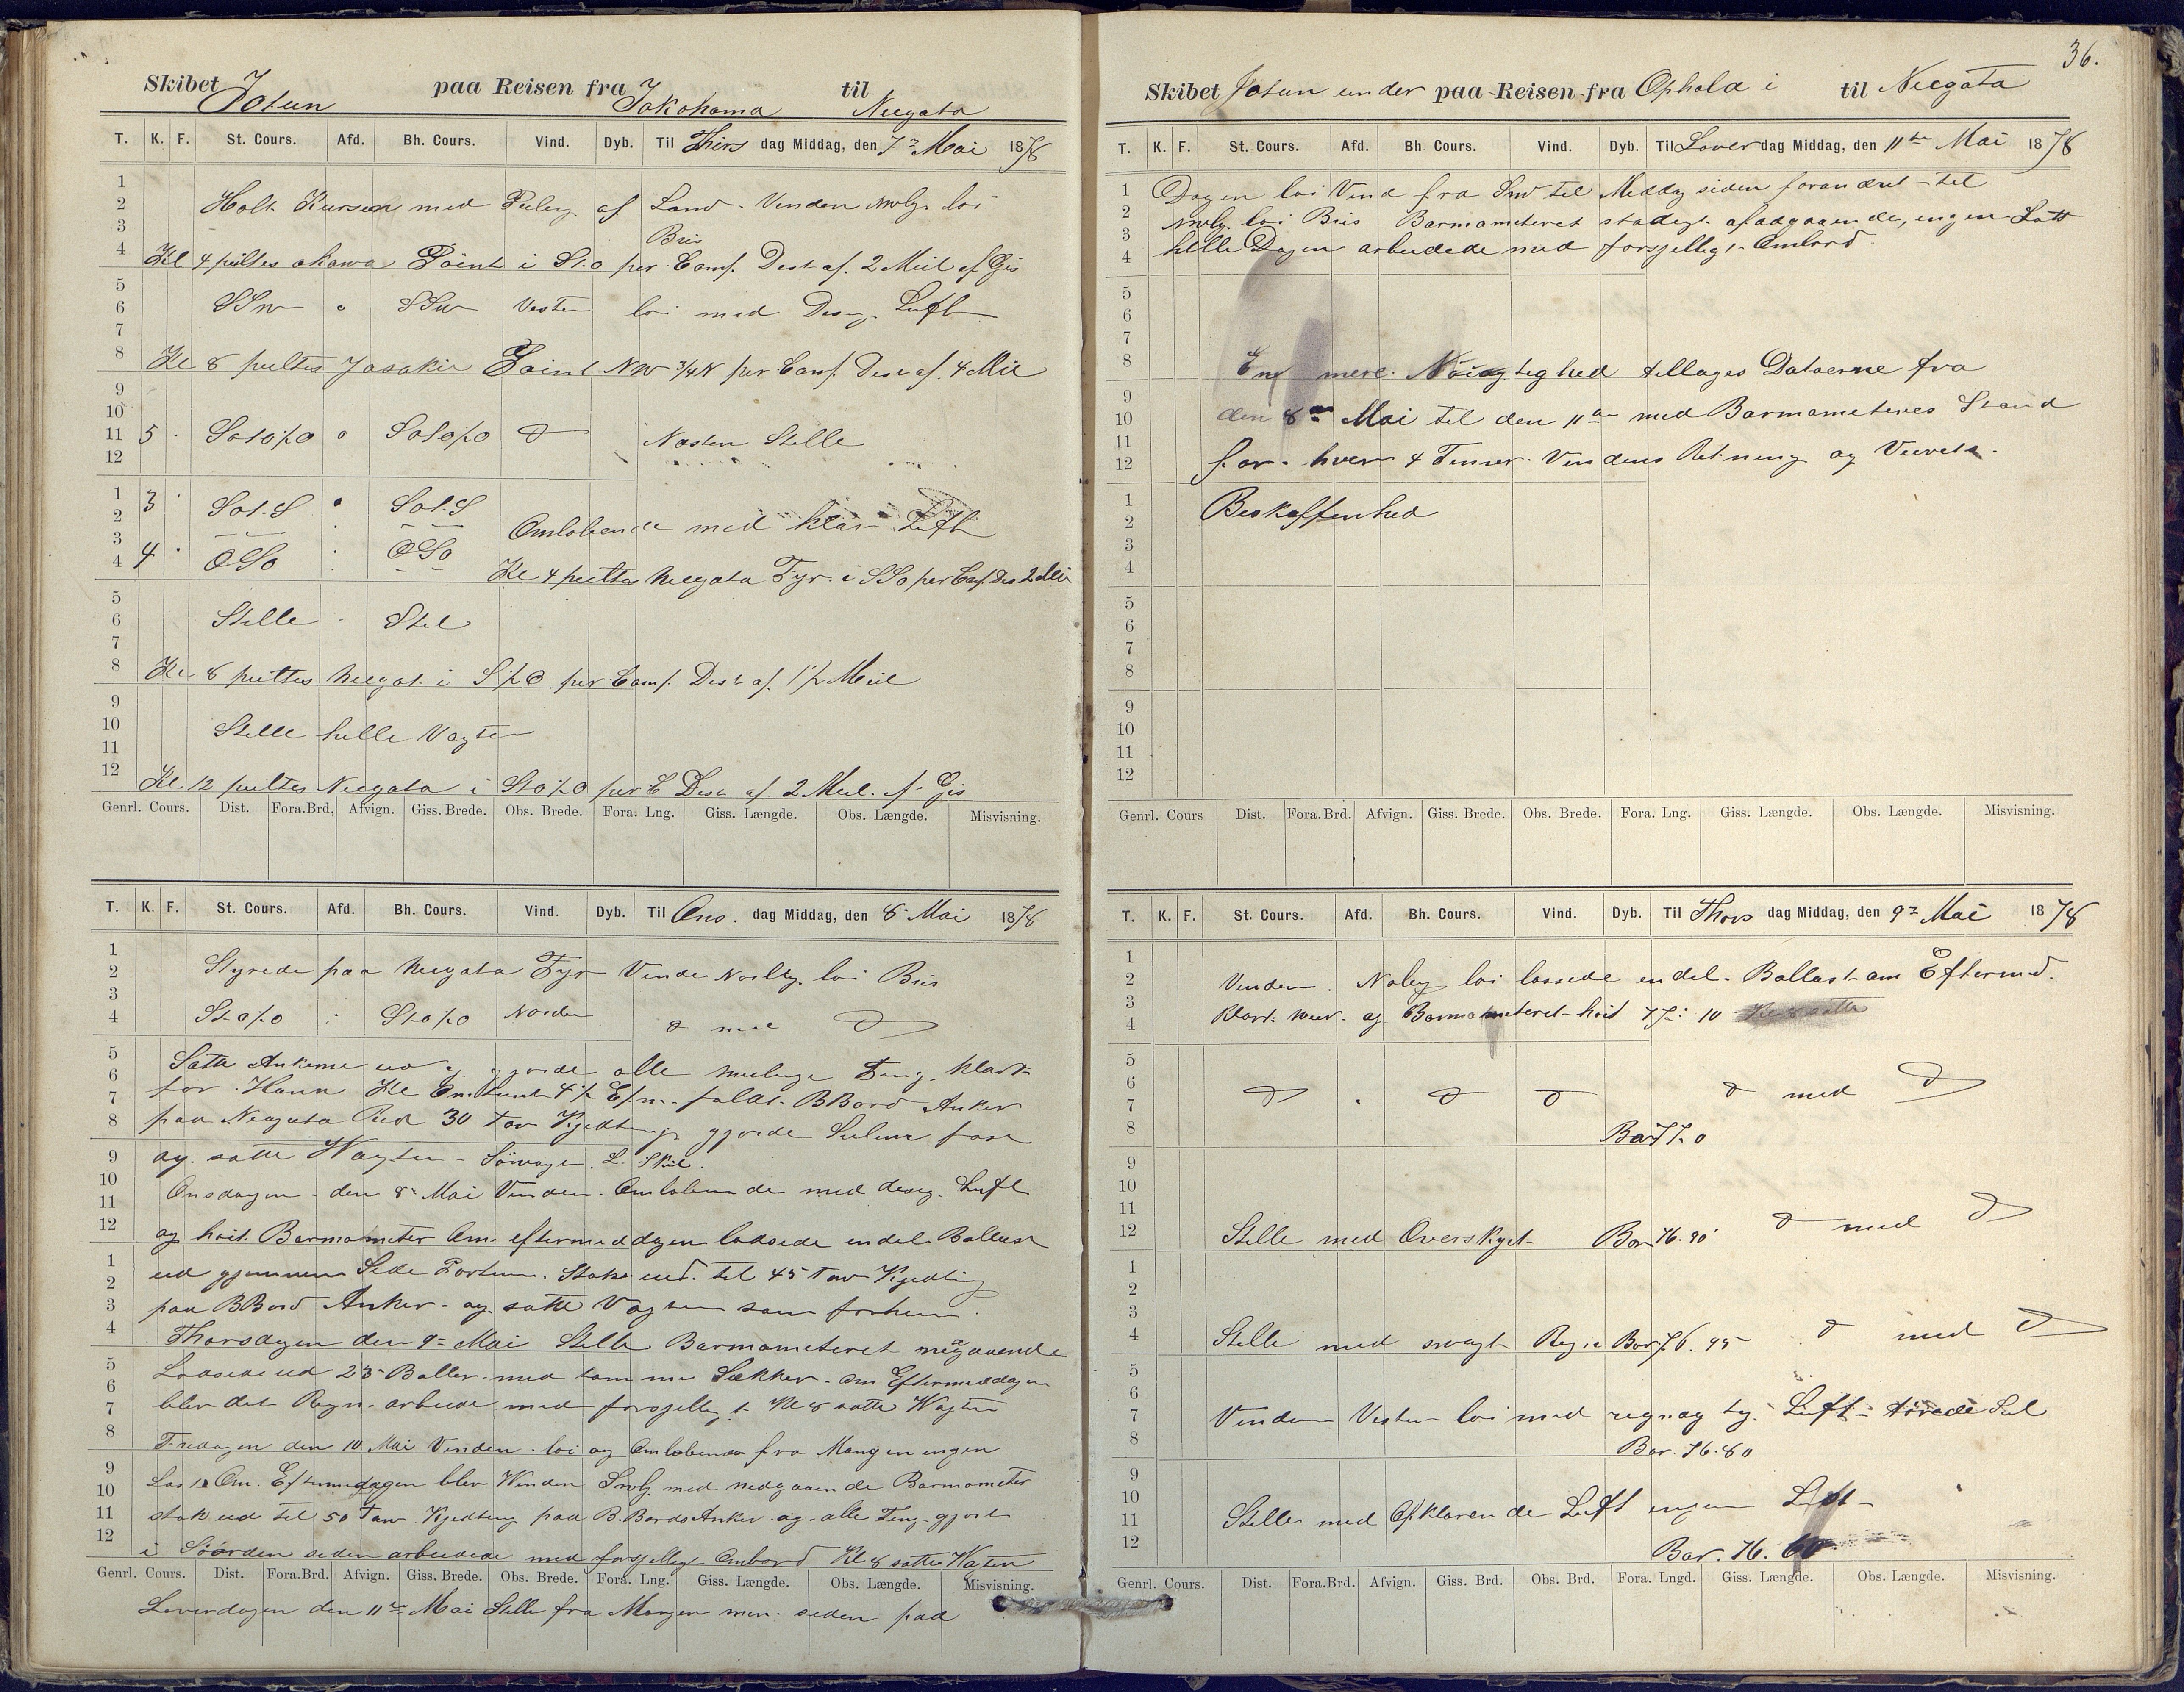 Skibet Jotun paa Reisen fra Jokohama til Neegata
T. K. F. St. Cours. Afd. Bh. Cours. Vind. Dyb. Til Thirs dag Middag, den 7de Mai 1878
1
2 Holt Kursen med Peiling af Land. Vinden nwlg. loi
3 Bris
4 Kl 4 peiltes akawa Point i St.o per Comp. Dest af. 2 Meil af Gis
5
6 SSw " SSw Vesten loi med Disig. Luft
7
8 Kl 8 peiltes Jasakie Point NW 3/4 N per Comp. Dest af. 4 Mil
9
10
11 5 Soto½o " Soto½o d Næsten Stille
12
1 3 Sot.S " Sot.S
2 Omløbende med klar Luft
3
4 4 OSo OSo Kl 4 peiltes Neegata Fyr. i SSo per Comp. Des 2 Mei
5
6 Stille Stil
7
8 Kl 8 peiltes Neegat. i S½O per Comp. Dest af. 1½ Meil
9
10 Stille helle Vagten
11
12 Kl. 12 peiltes Neegata i Sto½O per C Dest af. 2 Meil. af Gis
Genrl. Cours. Dist. Fora.Brd, Afvign. Giss. Brede. Obs. Brede. Fora. Lng. Giss. Længde. Obs. Længde. Misvisning.
T. K. F. St. Cours. Afd. Bh. Cours. Vind. Dyb. Til Ons. dag Middag, den 8 Mai 1878
1
2 Styrede paa Neegata Fyr Vinde Nordlg. loi Bris
3
4 Sto½o Sto½o Norden d med d
5 Satte Ankerne ud og gjorde alle mulige Ting. klart
6 for Havn Kl Omtrent 4½ Efm. faldt. BBord Anker
7
8 paa Neegata Red 30 Favn Kjetting gjorde Seilene fast
9 og. satte Wagten -
10 Onsdagen den 8de Mai Vinden. Omløbende med disig. Luft
11
12 og høit. Barmometer Om eftermeddagen lossede endel Ballast
1 ud gjennem Side Porten. Stak ud. til 45 Favn Kjetting
2
3 paa BBord Anker - og. satte Vagten som forhen.
4 Thorsdagen den 9de Mai Stille Barmometeret negaaende
5 Lossede ud 25 Baller med tomme Sækker. Om Eftermeddagen
6
7 blev det Regn. arbeide med forsjellig t Kl 8 satte Wagten
8 Fredagen den 10 Mai Vinden. loi og Omløbende fra Morgen ingen
9
10 Last Om. Eftermeddagen blev Vinden Swlg med nedgaaende Barmometer
11 stak ud til 50 Favn Kjetting paa B.Bords Anker og. alle Ting. gjort
12 i Søorden seden arbeidede med forsjellig Ombord Kl 8 satte Wagten
Genrl. Cours. Dist. Fora.Brd. Afvign. Giss. Brede. Obs. Brede. Fora. Lng. Giss. Længde. Obs. Længde. Misvisning.
Loverdagen den 11te Mai Stille fra Morgen men. seden paa
36.
Skibet Jotun under paa Reisen fra Ophold i til Neegata
T. K. F. St. Cours. Afd. Bh Cours. Vind. Dyb. Til Lover dag Middag, den 11te Mai 1878
1 Dagen loi Vind fra Sw til Meddag siden forandret til
2 nwlg. loi Bris Barmometeret stadigt afadgaaende, ingen Last
3 helle Dagen arbeidede med forsjellig t Ombord.
4
5
6
7
8 End mere Nøiagtighed tillages Datoerne fra
9
10 den 8de Mai til den 11te med Barmometeres Stand
11
12 for hver 4 Timer Vindens Retning og Veirets
1 Beskaffenhed
2
3
4
5
6
7
8
9
10
11
12
Genrl. Cours Dist. Fora.Brd. Afvign. Giss. Brede. Obs. Brede. Fora. Lng. Giss. Længde. Obs. Længde. Misvisning.
T. K. F. St. Cours. Afd. Bh. Cours. Vind. Dyb. Til Thors dag Middag, den 9de Mai 1878
1
2 Vinden. Nolig loi lossede endel. Ballast om Eftermd.
3
4 Klart veir. og Barmometeret høit 77: 10
5
6 d " d d d med d
7
8 Bar 77.0
9
10
11
12 Stille med Overskyet Bar 76.90 d med d
1
2
3
4 Stille med svagt Regn Bar 76.95 d med d
5
6
7 Vinden Vesten loi med regnag tg. Luft tørrede Seil
8 Bar. 76.80
9
10
11 Stille med Opklarende Luft ingen Last
12 Bar. 76. 60
Genrl. Cours. Dist. Fora.Brd. Afvign. Giss. Brd. Obs. Brd. Fora. Lngd. Giss. Længde. Obs. Længde. Misvisning.